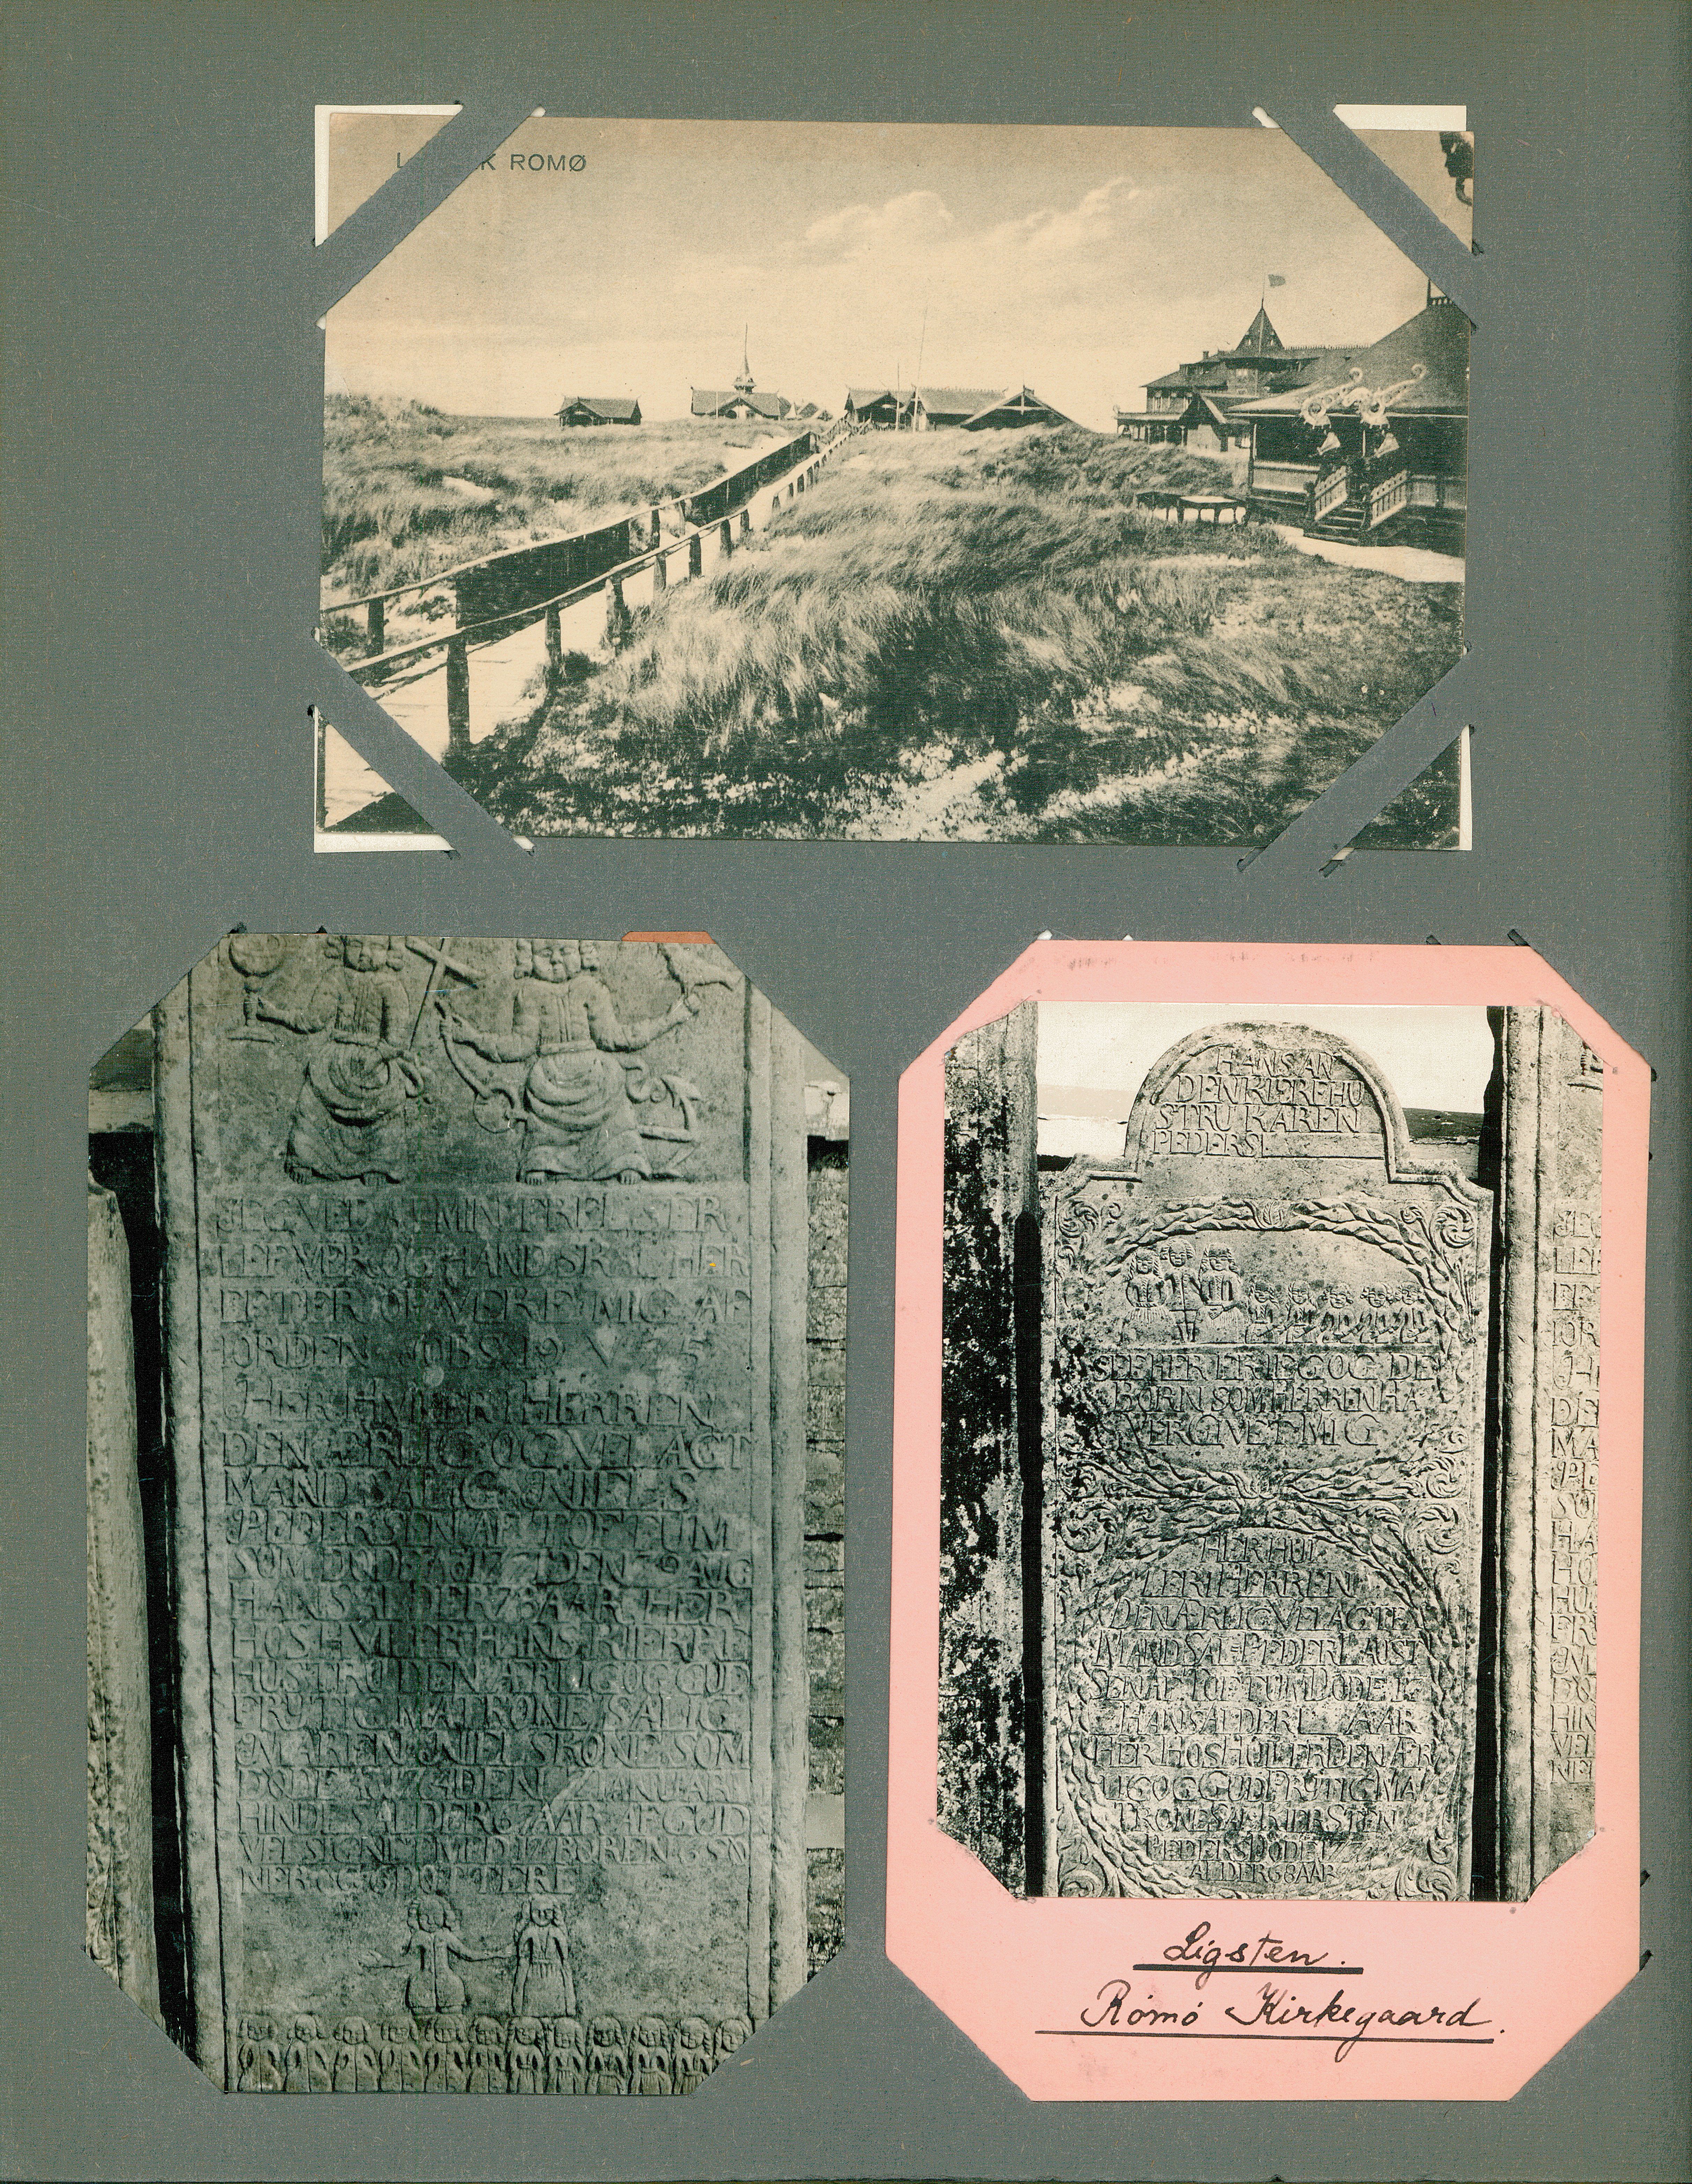 K ROMØ
JEG VED AT MIN FRELSER
LEFVER OG HAND SKAL HER
EFTER OPVEKE MIG AF
IORDEN JOBS 19 V 25
HER HVILER I HERREN
DEN ÆRLIG OG VEL AGT
MAND SALIG NIELS
PEDERSEN AF TOFTUM
SOM DØDE AO DEN AUG
HANS ALDER 78 AAR HER
HOS HVILER HANS KIERE
HUSTRU DEN ÆRLIG OG GUD
FRYTIG MATRONE SALIG
MAREN NIELSKONE SOM
DØDE DEN IANUARI
HINDES ALDER 67 AAR AF GUD
VELSIGNET MED 12 BØREN 6 SØ
NER OG 6 DØTTERE
HANS AN
DEN KIERE HU
STRU KAREN
PEDERS
SEE HER ER IEG OG DE
BØRN SOM HERREN HA
VER GIVET MIG
HER HUI
LER I HERREN
DEN ÆRLIG VEL AGTE
MAND SAL PEDER LAUST
SEN AF TOFTUM DØDE 17
HANS ALDER AAR
HER HOS HUILER DEN ÆR
LIG OG GUDFRYTIG MA
TRONE SAL KIERSTEN
PEDERS DØDE 17
ALDER 68 AAR
Ligsten.
Rømø Kirkegaard.